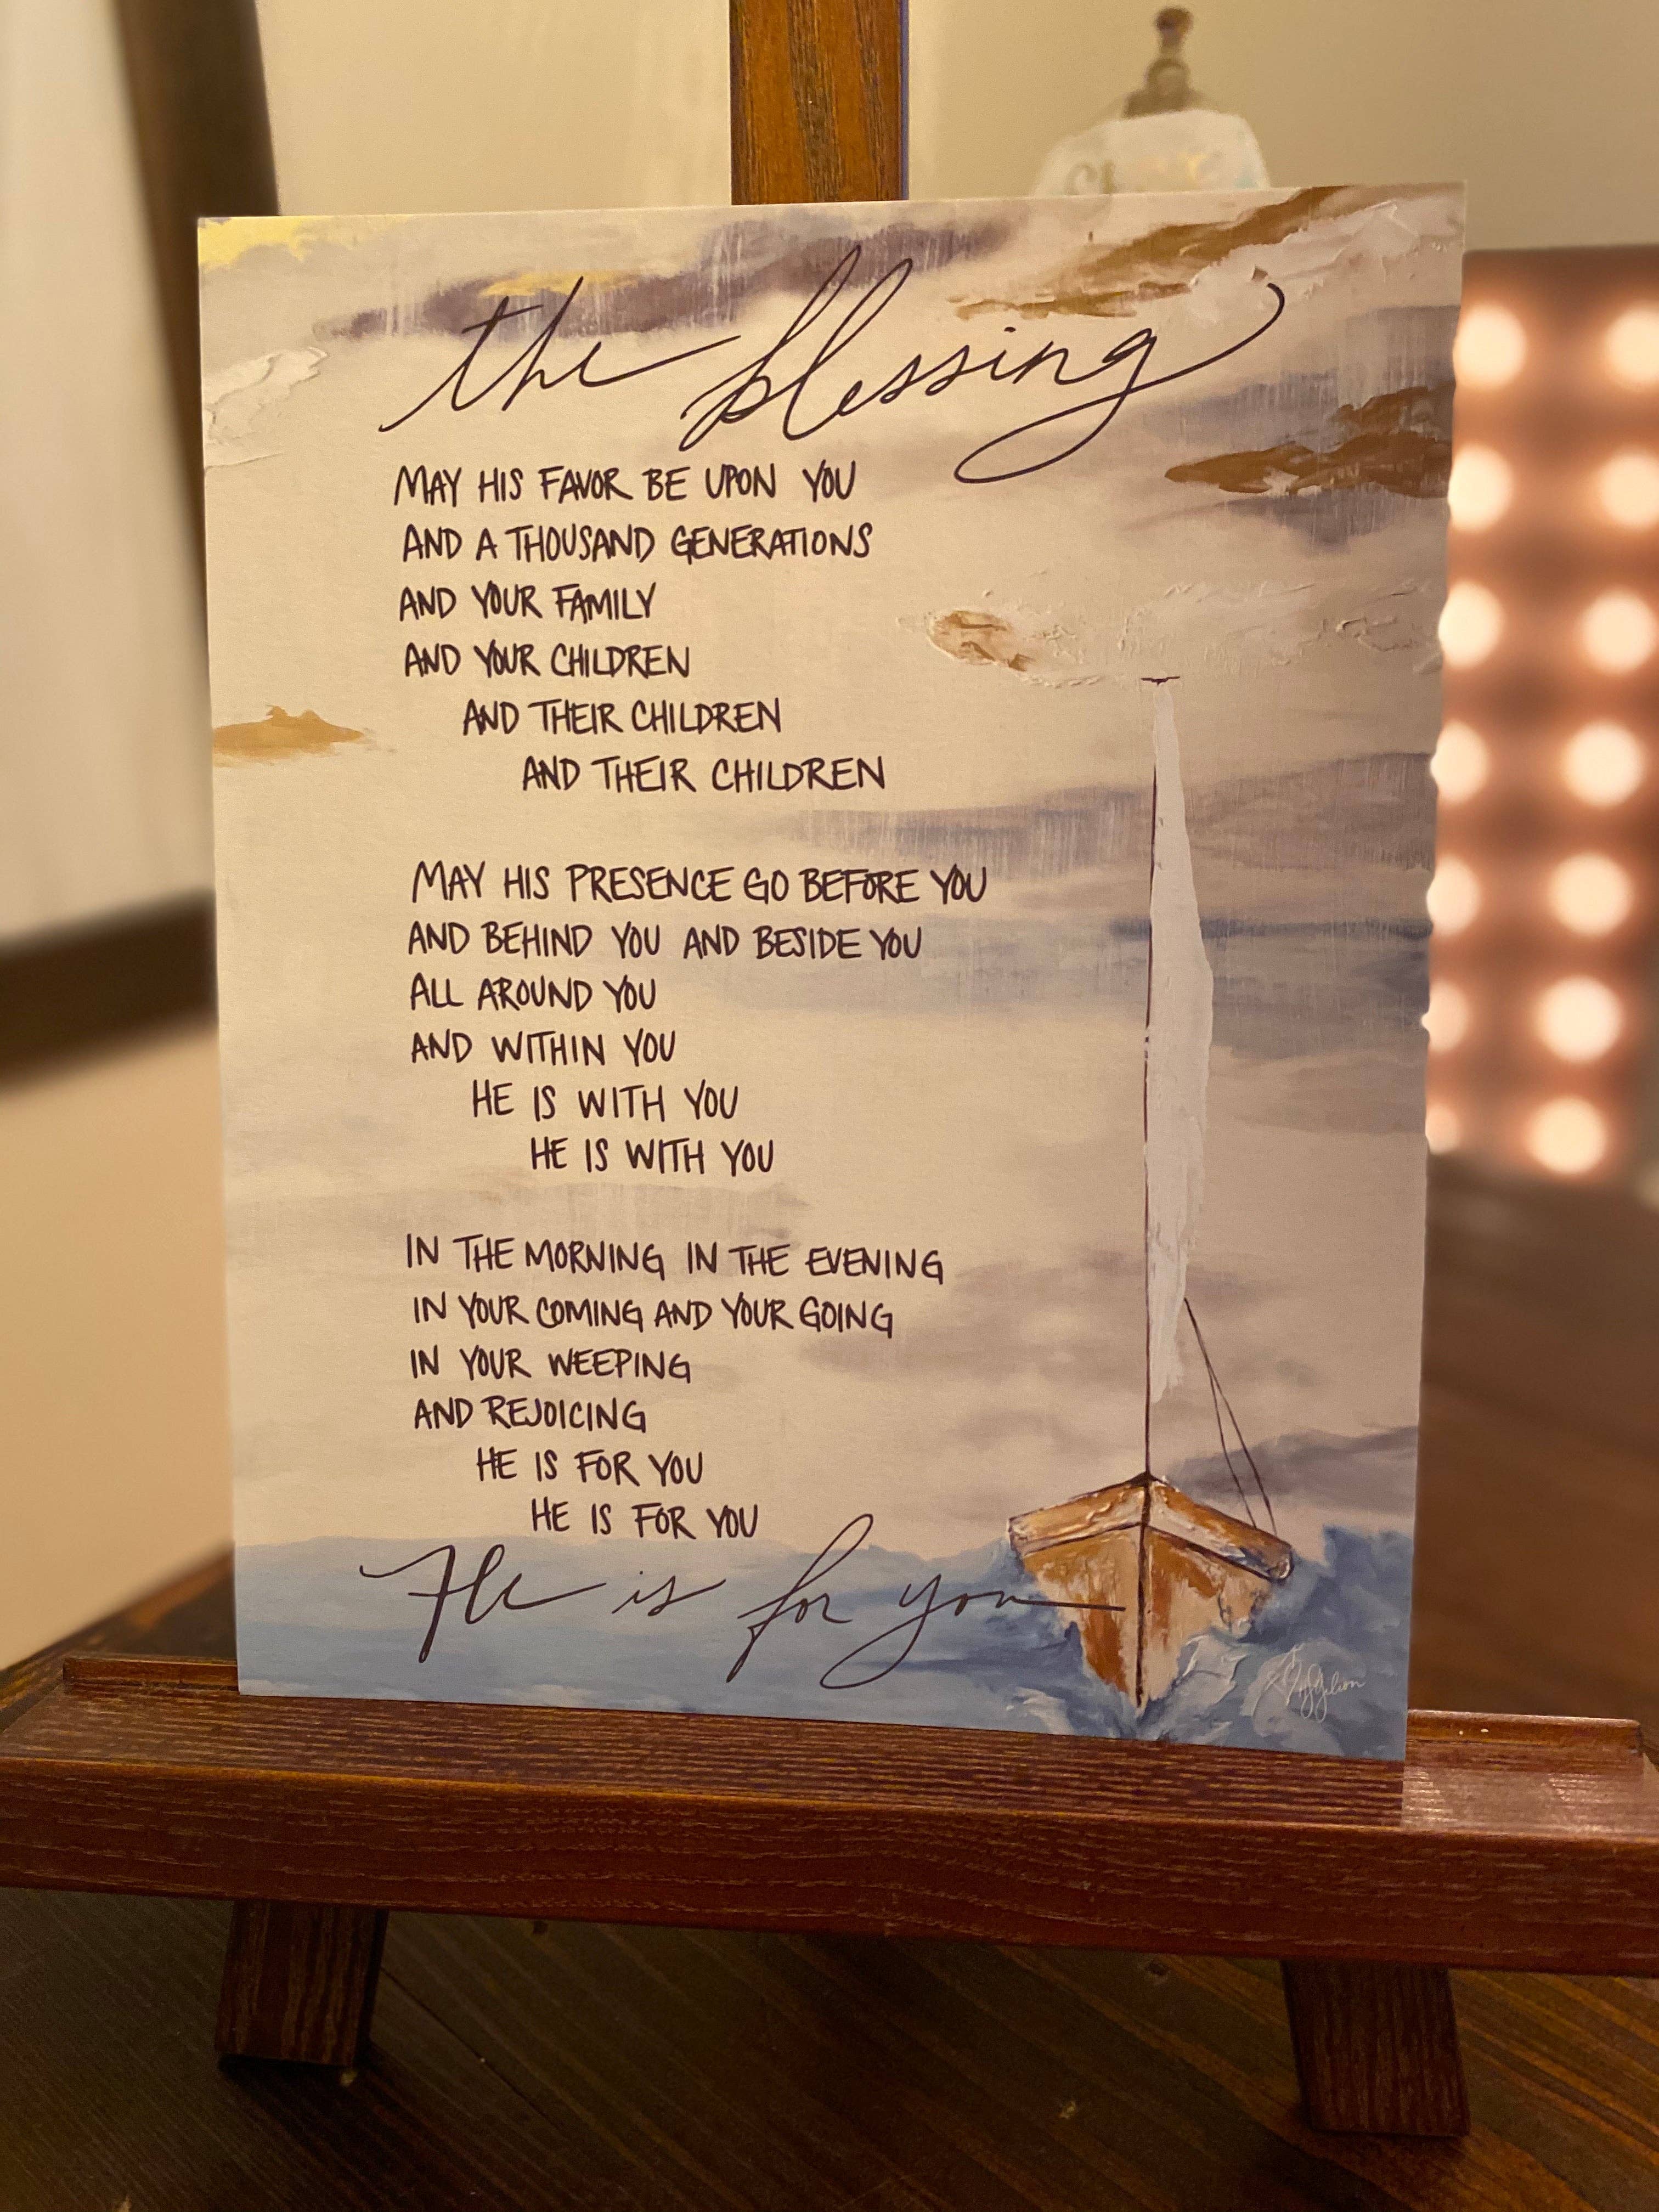 the blessing
MAY HIS FAVOR BE UPON YOU
AND A THOUSAND GENERATIONS
AND YOUR FAMILY
AND YOUR CHILDREN
AND THEIR CHILDREN
AND THEIR CHILDREN
MAY HIS PRESENCE GO BEFORE YOU
AND BEHIND YOU AND BESIDE YOU
ALL AROUND YOU
AND WITHIN YOU
HE IS WITH YOU
HE IS WITH YOU
IN THE MORNING IN THE EVENING
IN YOUR COMING AND YOUR GOING
IN YOUR WEEPING
AND REJOICING
HE IS FOR YOU
HE IS FOR YOU
He is for you